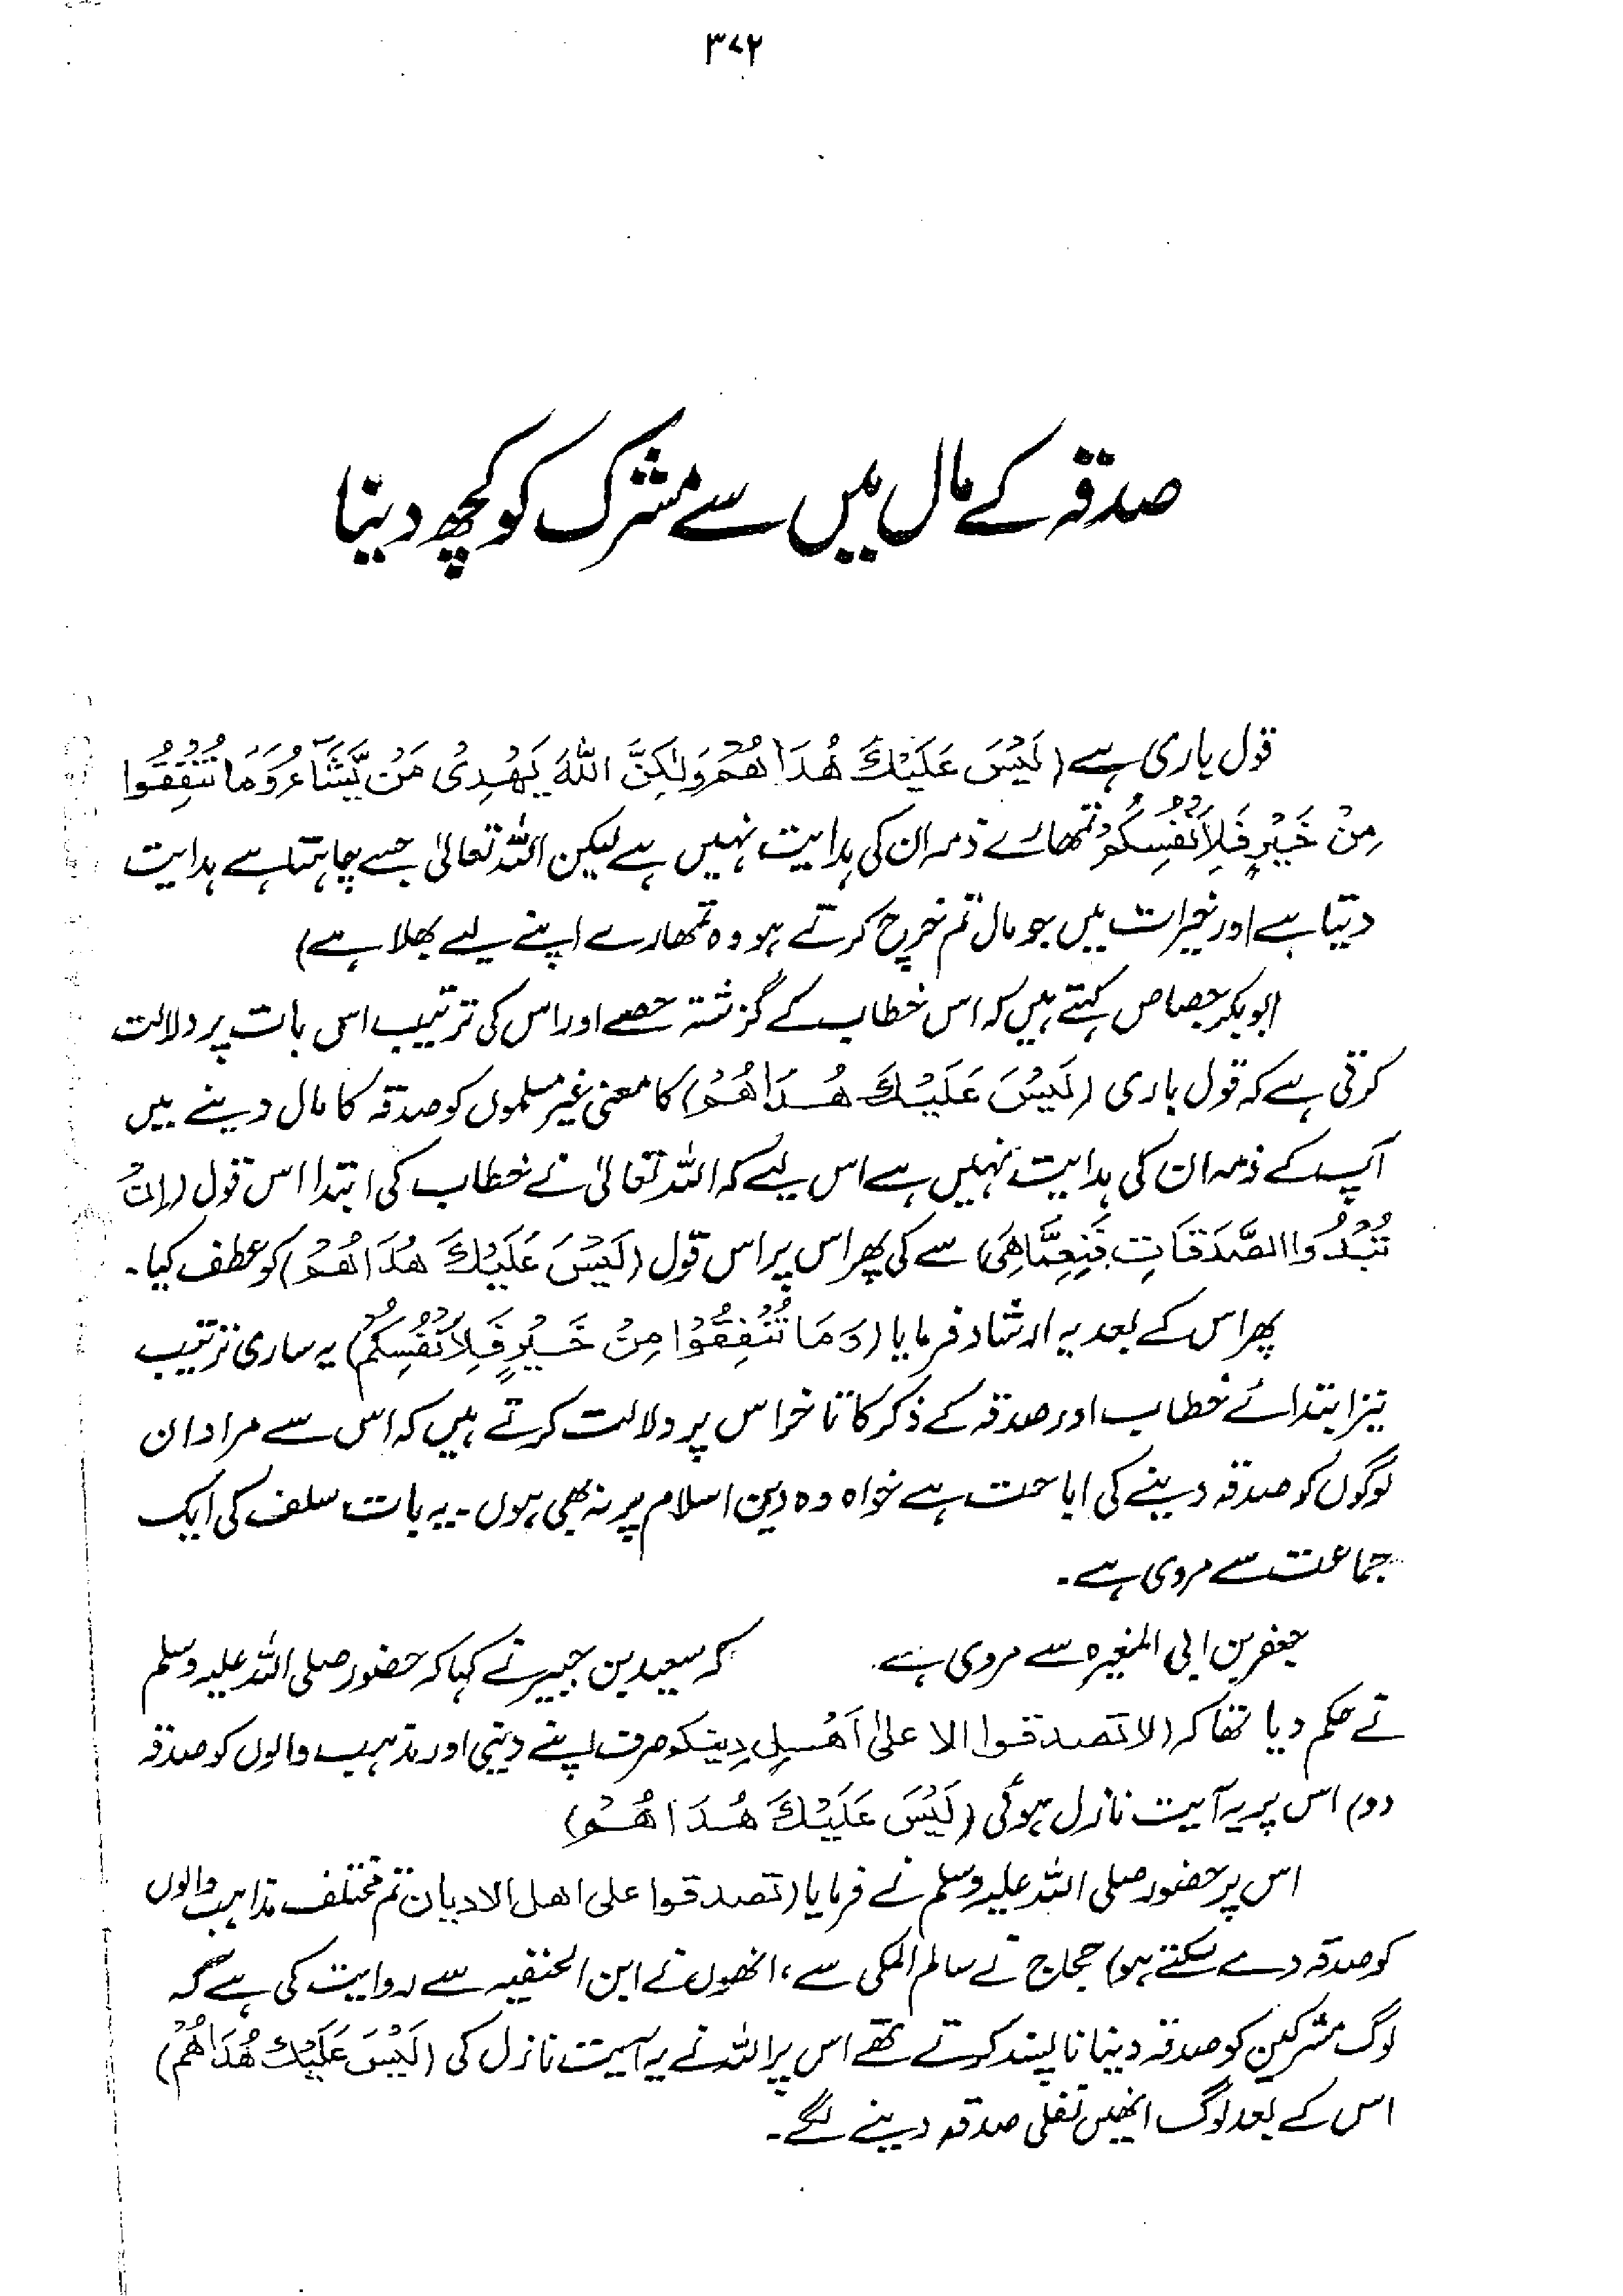 ۳۷۲
صدقہ کے مال میں سے مشرک کو کچھ دینا
قول باری ہے (لَيْسَ عَلَيْكَ هُدَاهُمْ وَلٰكِنَّ اللّٰهَ يَهْدِىْ مَنْ يَّشَآءُ وَمَا تُنْفِقُوْا
مِنْ خَيْرٍ فَلِاَنْفُسِكُمْ تمھارے ذمہ ان کی ہدایت نہیں ہے لیکن اللہ تعالیٰ جسے چاہتا ہے ہدایت
دیتا ہے اور خیرات میں جو مال تم خرچ کرتے ہو وہ تمھارے اپنے لیے بھلا ہے)
ابوبکر جصاص کہتے ہیں کہ اس خطاب کے گزشتہ حصے اور اس کی ترتیب اسی بات پر دلالت
کرتی ہے کہ قول باری (لَيْسَ عَلَيْكَ هُدَاهُمْ) کا معنی غیر مسلموں کو صدقہ کا مال دینے میں
آپ کے ذمہ ان کی ہدایت نہیں ہے اس لیے کہ اللہ تعالیٰ نے خطاب کی ابتدا اس قول (اِنْ
تُبْدُوا الصَّدَقَاتِ فَنِعِمَّا هِىَ) سے کی پھر اس پر اس قول (لَيْسَ عَلَيْكَ هُدَاهُمْ) کو عطف کیا۔
پھر اس کے بعد یہ ارشاد فرمایا (وَمَا تُنْفِقُوْا مِنْ خَيْرٍ فَلِاَنْفُسِكُمْ) یہ ساری ترتیب
نیز ابتدائے خطاب اور صدقہ کے ذکر کا تاخر اس پر دلالت کرتے ہیں کہ اس سے مراد ان
لوگوں کو صدقہ دینے کی اباحت ہے خواہ وہ دین اسلام پر نہ بھی ہوں۔ یہ بات سلف کی ایک
جماعت سے مروی ہے۔
جعفر بن ابی المغیرہ سے مروی ہے کہ سعید بن جبیر نے کہا کہ حضور صلی اللہ علیہ وسلم
نے حکم دیا تھا کہ (لا تصدقوا الا علىٰ اَهْلِ دِينكم صرف اپنے دینی اور مذہب والوں کو صدقہ
دو) اس پر یہ آیت نازل ہوئی (لَيْسَ عَلَيْكَ هُدَاهُمْ)
اس پر حضور صلی اللہ علیہ وسلم نے فرمایا (تصدقوا على اهل الاديان تم مختلف مذاہب والوں
کو صدقہ دے سکتے ہو) حجاج نے سالم المکی سے، انھوں نے ابن الحنفیہ سے روایت کی ہے کہ
لوگ مشرکین کو صدقہ دینا ناپسند کرتے تھے اس پر اللہ نے یہ آیت نازل کی (لَيْسَ عَلَيْكَ هُدَاهُمْ)
اس کے بعد لوگ انھیں نفلی صدقہ دینے لگے۔